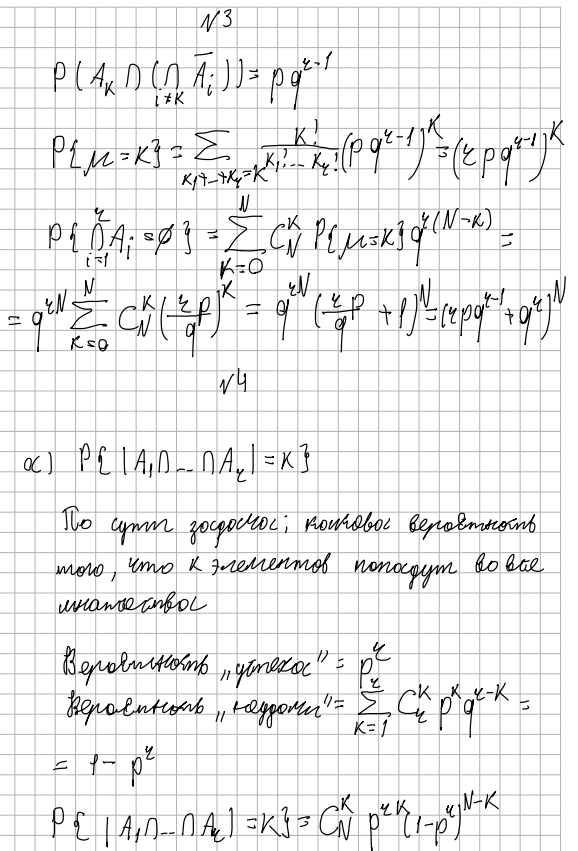 №3
P(A_K ∩ (∩_{i≠K} Ā_i)) = pq^{r-1}
P{μ=K} = ∑_{K_1+...+K_r=K} K!/(K_1!...K_r!) (pq^{r-1})^K = (rpq^{r-1})^K
P{∩_{i=1}^r A_i = ∅} = ∑_{K=0}^N C_N^K P{μ=K} q^{r(N-K)} =
= q^{rN} ∑_{K=0}^N C_N^K (rp/q)^K = q^{rN} (rp/q + 1)^N = (rpq^{r-1} + q^r)^N
№4
а) P{|A_1∩...∩A_r| = K}
По сути задача; какова вероятность
того, что K элементов попадут во все
множества
Вероятность „успеха" = p^r
Вероятность „неудачи" = ∑_{K=1}^r C_r^K p^K q^{r-K} =
= 1 - p^r
P{|A_1∩...∩A_r| = K} = C_N^K p^{rK} (1-p^r)^{N-K}